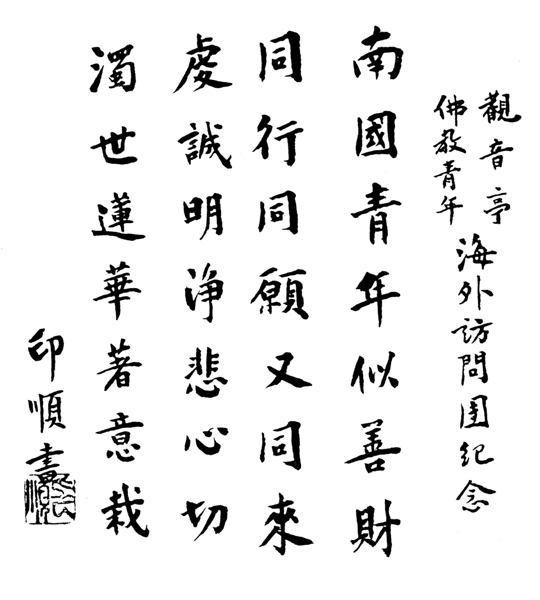 觀音亭
佛教青年
海外訪問團紀念
南國青年似善財
同行同願又同來
虔誠明淨悲心切
濁世蓮華著意栽
印順書
印順